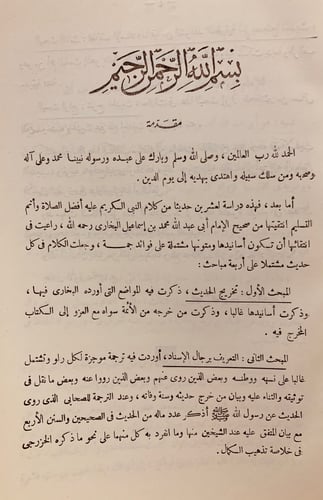 بسم الله الرحمن الرحيم
مقدمة
الحمد لله رب العالمين، وصلى الله وسلم وبارك على عبده ورسوله نبينا محمد وعلى آله
وصحبه ومن سلك سبيله واهتدى بهديه إلى يوم الدين.
أما بعد، فهذه دراسة لعشرين حديثا من كلام النبي الكريم عليه أفضل الصلاة وأتم
التسليم انتقيتها من صحيح الإمام أبي عبد الله محمد بن إسماعيل البخارى رحمه الله، راعيت في
انتقائها أن تكون أسانيدها ومتونها مشتملة على فوائد جمـــة، وجعلت الكلام في كل
حديث مشتملا على أربعة مباحث:
المبحث الأول: تخريج الحديث، ذكرت فيه المواضع التي أورده البخارى فيها،
وذكرت أسانيدها غالبا، وذكرت من خرجه من الأئمة سواه مع العزو إلى الكتاب
المخرج فيه.
المبحث الثانى: التعريف برجال الإسناد، أوردت فيه ترجمة موجزة لكل راو وتشتمل
غالبا على نسبه ووطنه وبعض الذين روى عنهم وبعض الذين رووا عنه وبعض ما نقل فى
توثيقه والثناء عليه وبيان من خرج حديثه وسنة وفاته، وعند الترجمة للصحابي الذى روى
الحديث عن رسول الله ﷺ أذكر عدد ماله من الحديث فى الصحيحين والسنن الأربع
مع بيان المتفق عليه عند الشيخين منها وما انفرد به كل منهما على نحو ما ذكره الخزرجي
فى خلاصة تذهيب الكمال.